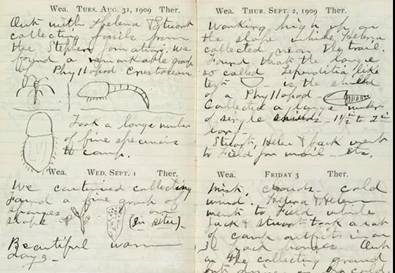 Wea. TUES. AUG. 31, 1909 Ther.
Out with Helena & Stuart
collecting fossils from
the Stephen formation. We
found a remarkable group
of Phyllopod Crustaceans
Took a large number
of fine specimens
to camp.
Wea. WED. SEPT. 1 Ther.
We continued collecting
found a fine group of
sponges on
(in situ).
Beautiful warm
days
Wea. THUR. SEPT. 2, 1909 Ther.
Working high up on
the slope while Helena
collected near the trail.
Found that the large
so called Leperditia like
test is the shield
of a Phyllopod
Collected a large number
of
bar.
Stuart, Helen & Jack went
to Field for mail etc.
Wea. FRIDAY 3 Ther.
Mist, clouds, cold
wind. Helena & Helen
went to Field while
Jack & Stuart took a lot
of camp outfit
Out
on the collecting ground